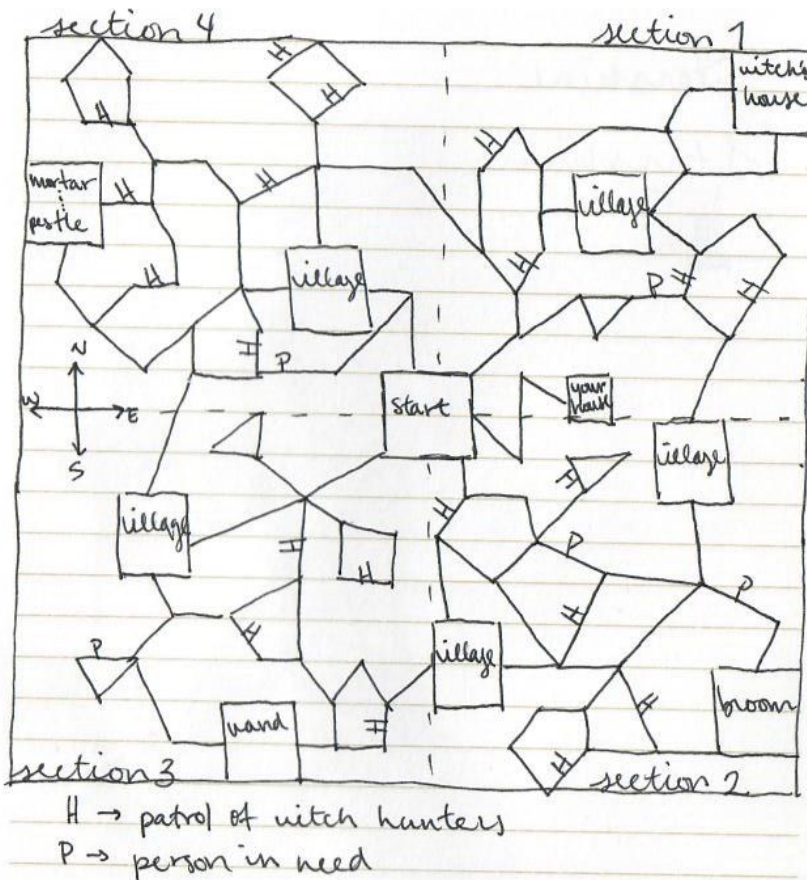 section 4
section 1
witch's
house
H
H
H
H
H
mortar
pestle
H
village
village
H
H
H
H
P
H
P
N
W
E
S
start
your
house
village
village
H
H
P
H
H
H
P
H
P
village
H
H
H
wand
broom
section 3
section 2
H → patrol of witch hunters
P → person in need